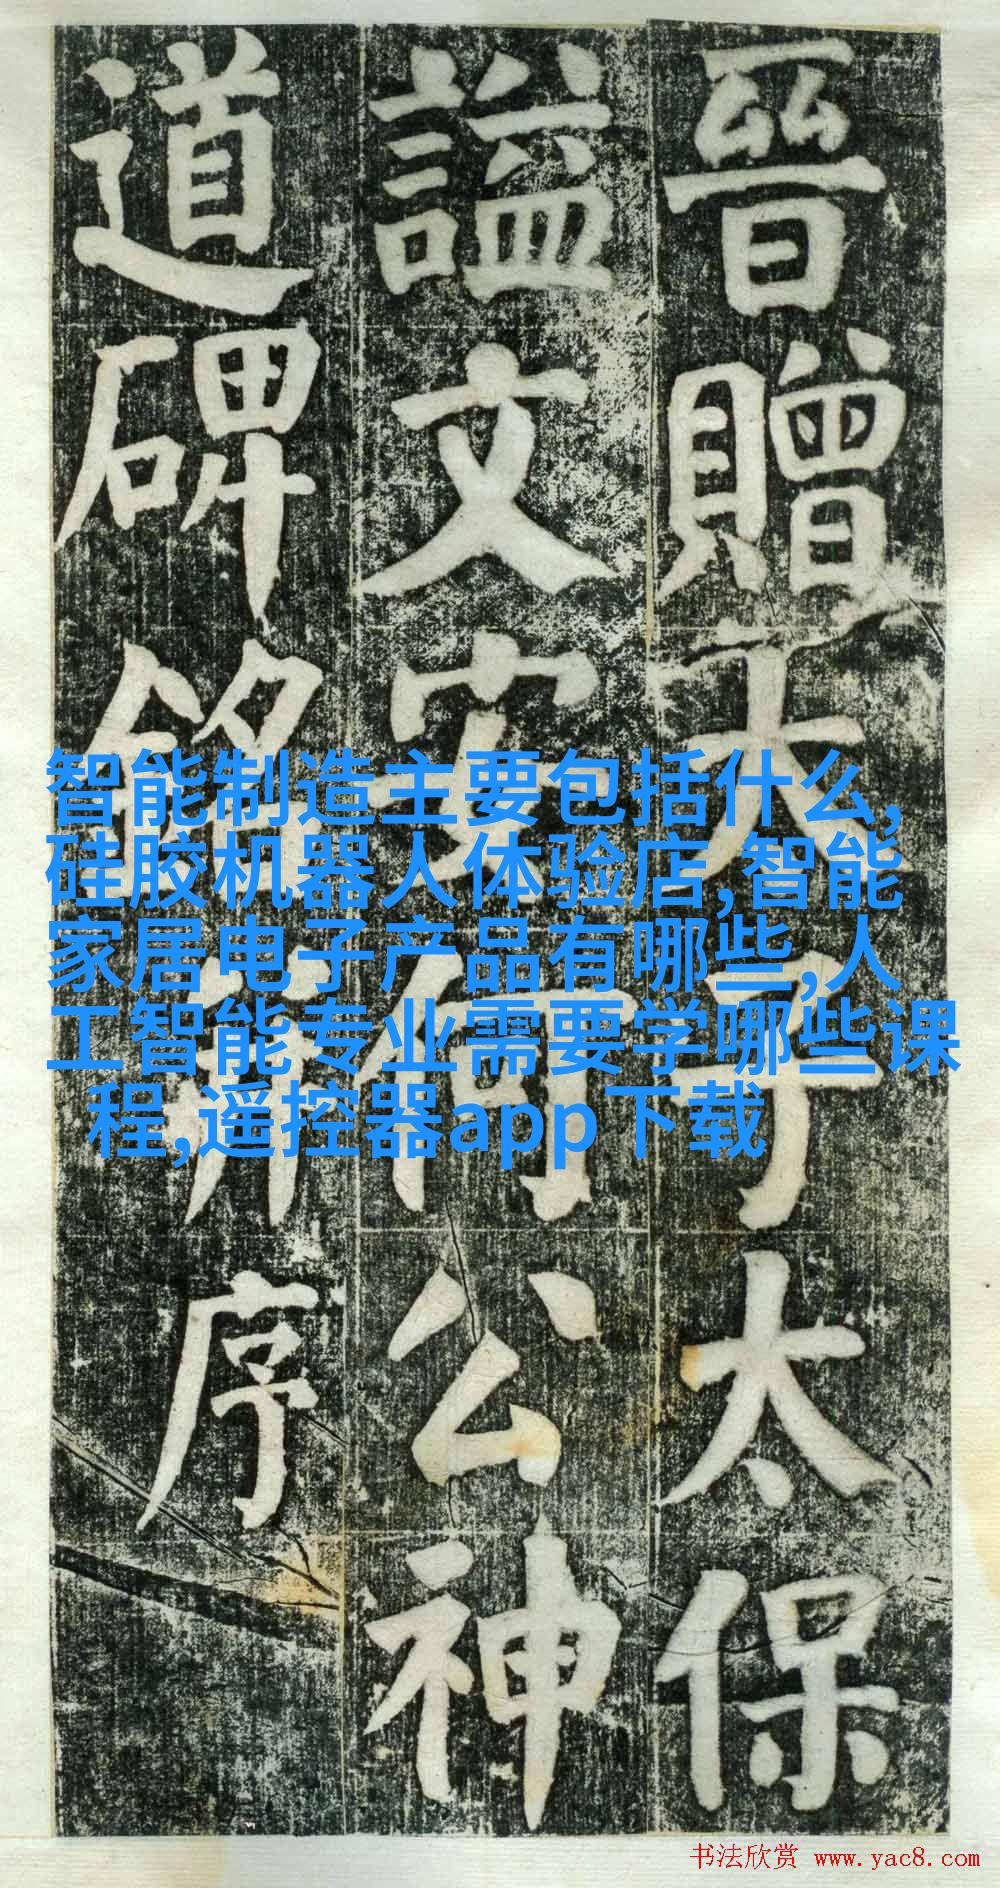 晉贈太子太保
謚文安何公神
道碑銘并序
智能制造主要包括什么,
硅胶机器人体验店,智能
家居电子产品有哪些,人
工智能专业需要学哪些课
程,遥控器app下载
书法欣赏 www.yac8.com